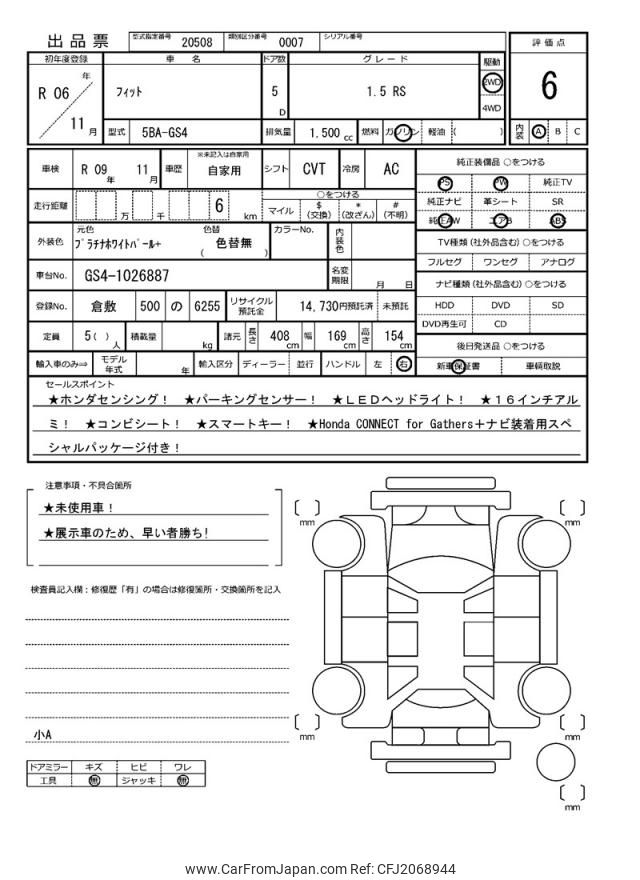 出品票 型式指定番号 20508 類別区分番号 0007 シリアル番号
初年度登録 車名 ドア数 グレード 駆動 評価点
R 06 年 11 月 フィット 5 D 1.5 RS 2WD 4WD 6
型式 5BA-GS4 排気量 1.500 cc 燃料 ガソリン 軽油 ( ) 内装 A B C
車検 R 09 年 11 月 車歴 ※未記入は自家用 自家用 シフト CVT 冷房 AC 純正装備品 ○をつける
PS PW 純正TV
走行距離 万 千 6 km ○をつける マイル $ (交換) * (改ざん) # (不明) 純正ナビ 革シート SR
純正AW エアB ABS
外装色 元色 プラチナホワイトパール+ 色替 ( 色替無 ) カラーNo. 内装色 TV種類 (社外品含む) ○をつける
フルセグ ワンセグ アナログ
車台No. GS4-1026887 名変期限 月 日 ナビ種類 (社外品含む) ○をつける
登録No. 倉敷 500 の 6255 リサイクル預託金 14,730円預託済 未預託 HDD DVD SD
DVD再生可 CD
定員 5 ( ) 人 積載量 kg 諸元 長さ 408 cm 幅 169 cm 高さ 154 cm 後日発送品 ○をつける
輸入車のみ⇒ モデル年式 年 輸入区分 ディーラー 並行 ハンドル 左 右 新車保証書 車輌取説
セールスポイント
★ホンダセンシング! ★パーキングセンサー! ★LEDヘッドライト! ★16インチアル
ミ! ★コンビシート! ★スマートキー! ★Honda CONNECT for Gathers+ナビ装着用スペ
シャルパッケージ付き!
注意事項・不具合箇所
★未使用車!
★展示車のため、早い者勝ち!
検査員記入欄:修復歴「有」の場合は修復箇所・交換箇所を記入
小A
ドアミラー キズ ヒビ ワレ
工具 無 ジャッキ 無
mm mm
mm mm
mm
www.CarFromJapan.com Ref: CFJ2068944